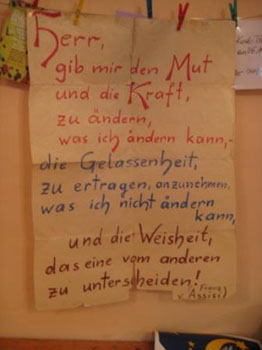 Herr,
gib mir den Mut
und die Kraft,
zu ändern,
was ich ändern kann,-
die Gelassenheit,
zu ertragen, anzunehmen,
was ich nicht ändern
kann,
und die Weisheit,
das eine vom anderen
zu unterscheiden!
(Franz
v. Assisi)